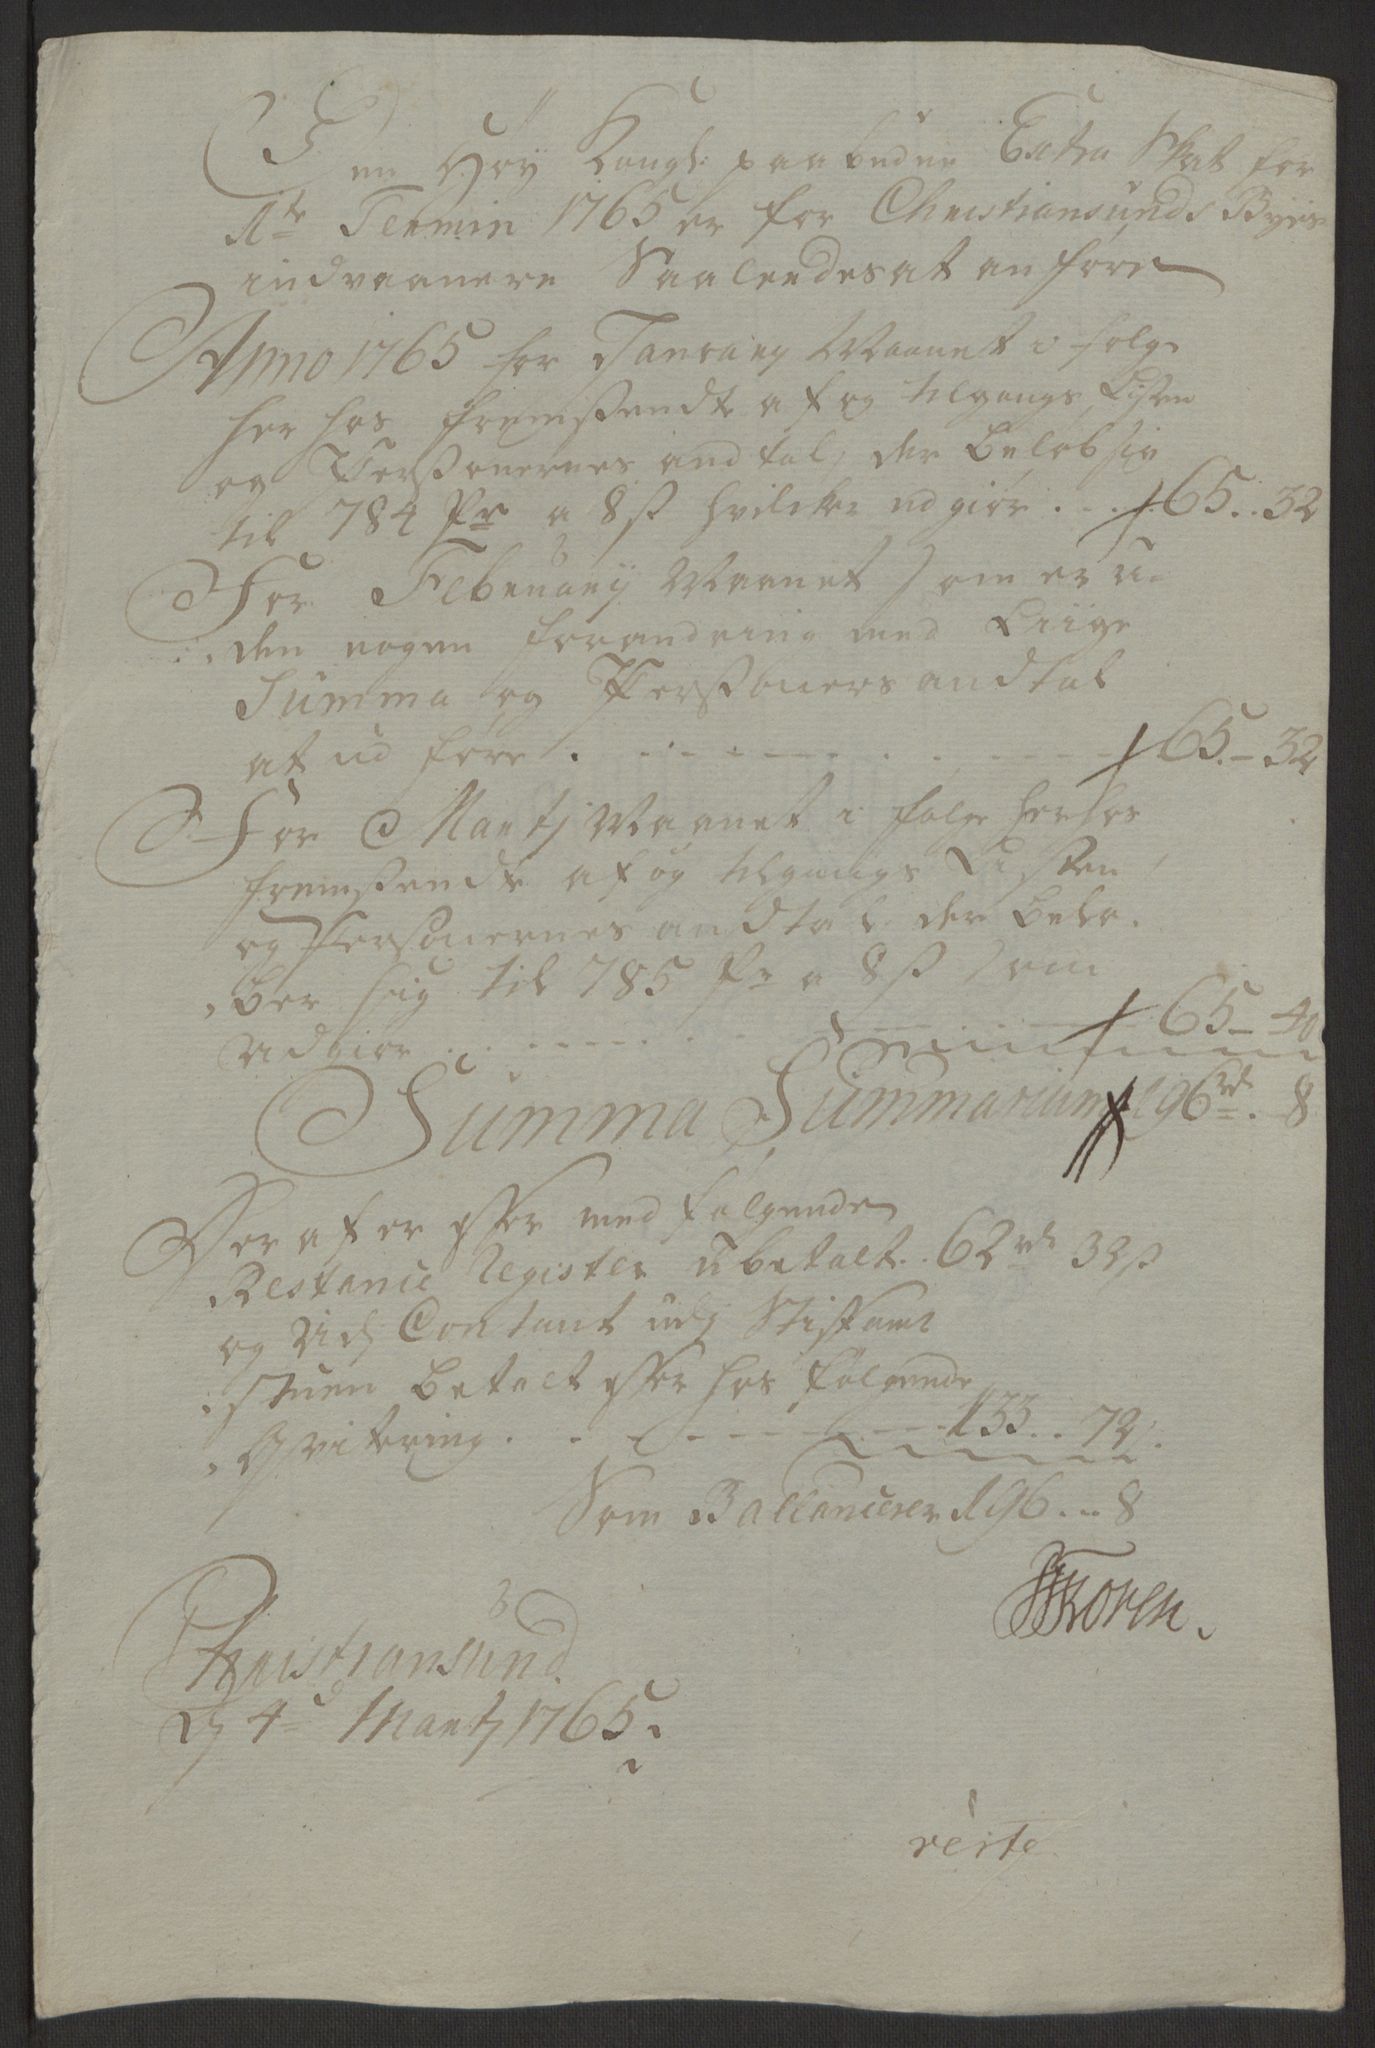 Den Höy Kongl: paabudne Extra Skat for
1te Termin 1765 er for Christiansunds Byes
indvaanere Saalendes at anföre
Anno 1765 for January Maanet i fölge
her hos fremsendte af og tilgangs Listen
og Personernes andtal, der belöb sig
til 784 Pr a 8 s hvilcke udgiör . . . 65 .. 32
For February Maanet som er u-
den nogen forandring med Liige
Summa og Persohners andtal
at ud före . . . . . . 65. – 32
For Martj Maanet i fölge her hos
fremsendte af og tilgangs Listen
og Personernes andtal der belö-
ber sig til 785 Pr a 8 s som
udgiör . . . . . . 65 – 40
Summa Summarium 196 rd. 8
Der af er efter med fölgende
Restance Register ubetalt .. 62 rd 32 s
og Contant udj Stiftamt
stuen betalt efter hos fölgende
Qvitering . . . . . . 133 .. 72.
Som Ballancerer 196 .. 8
Koren.
Christiansund
d 4de Martj 1765.